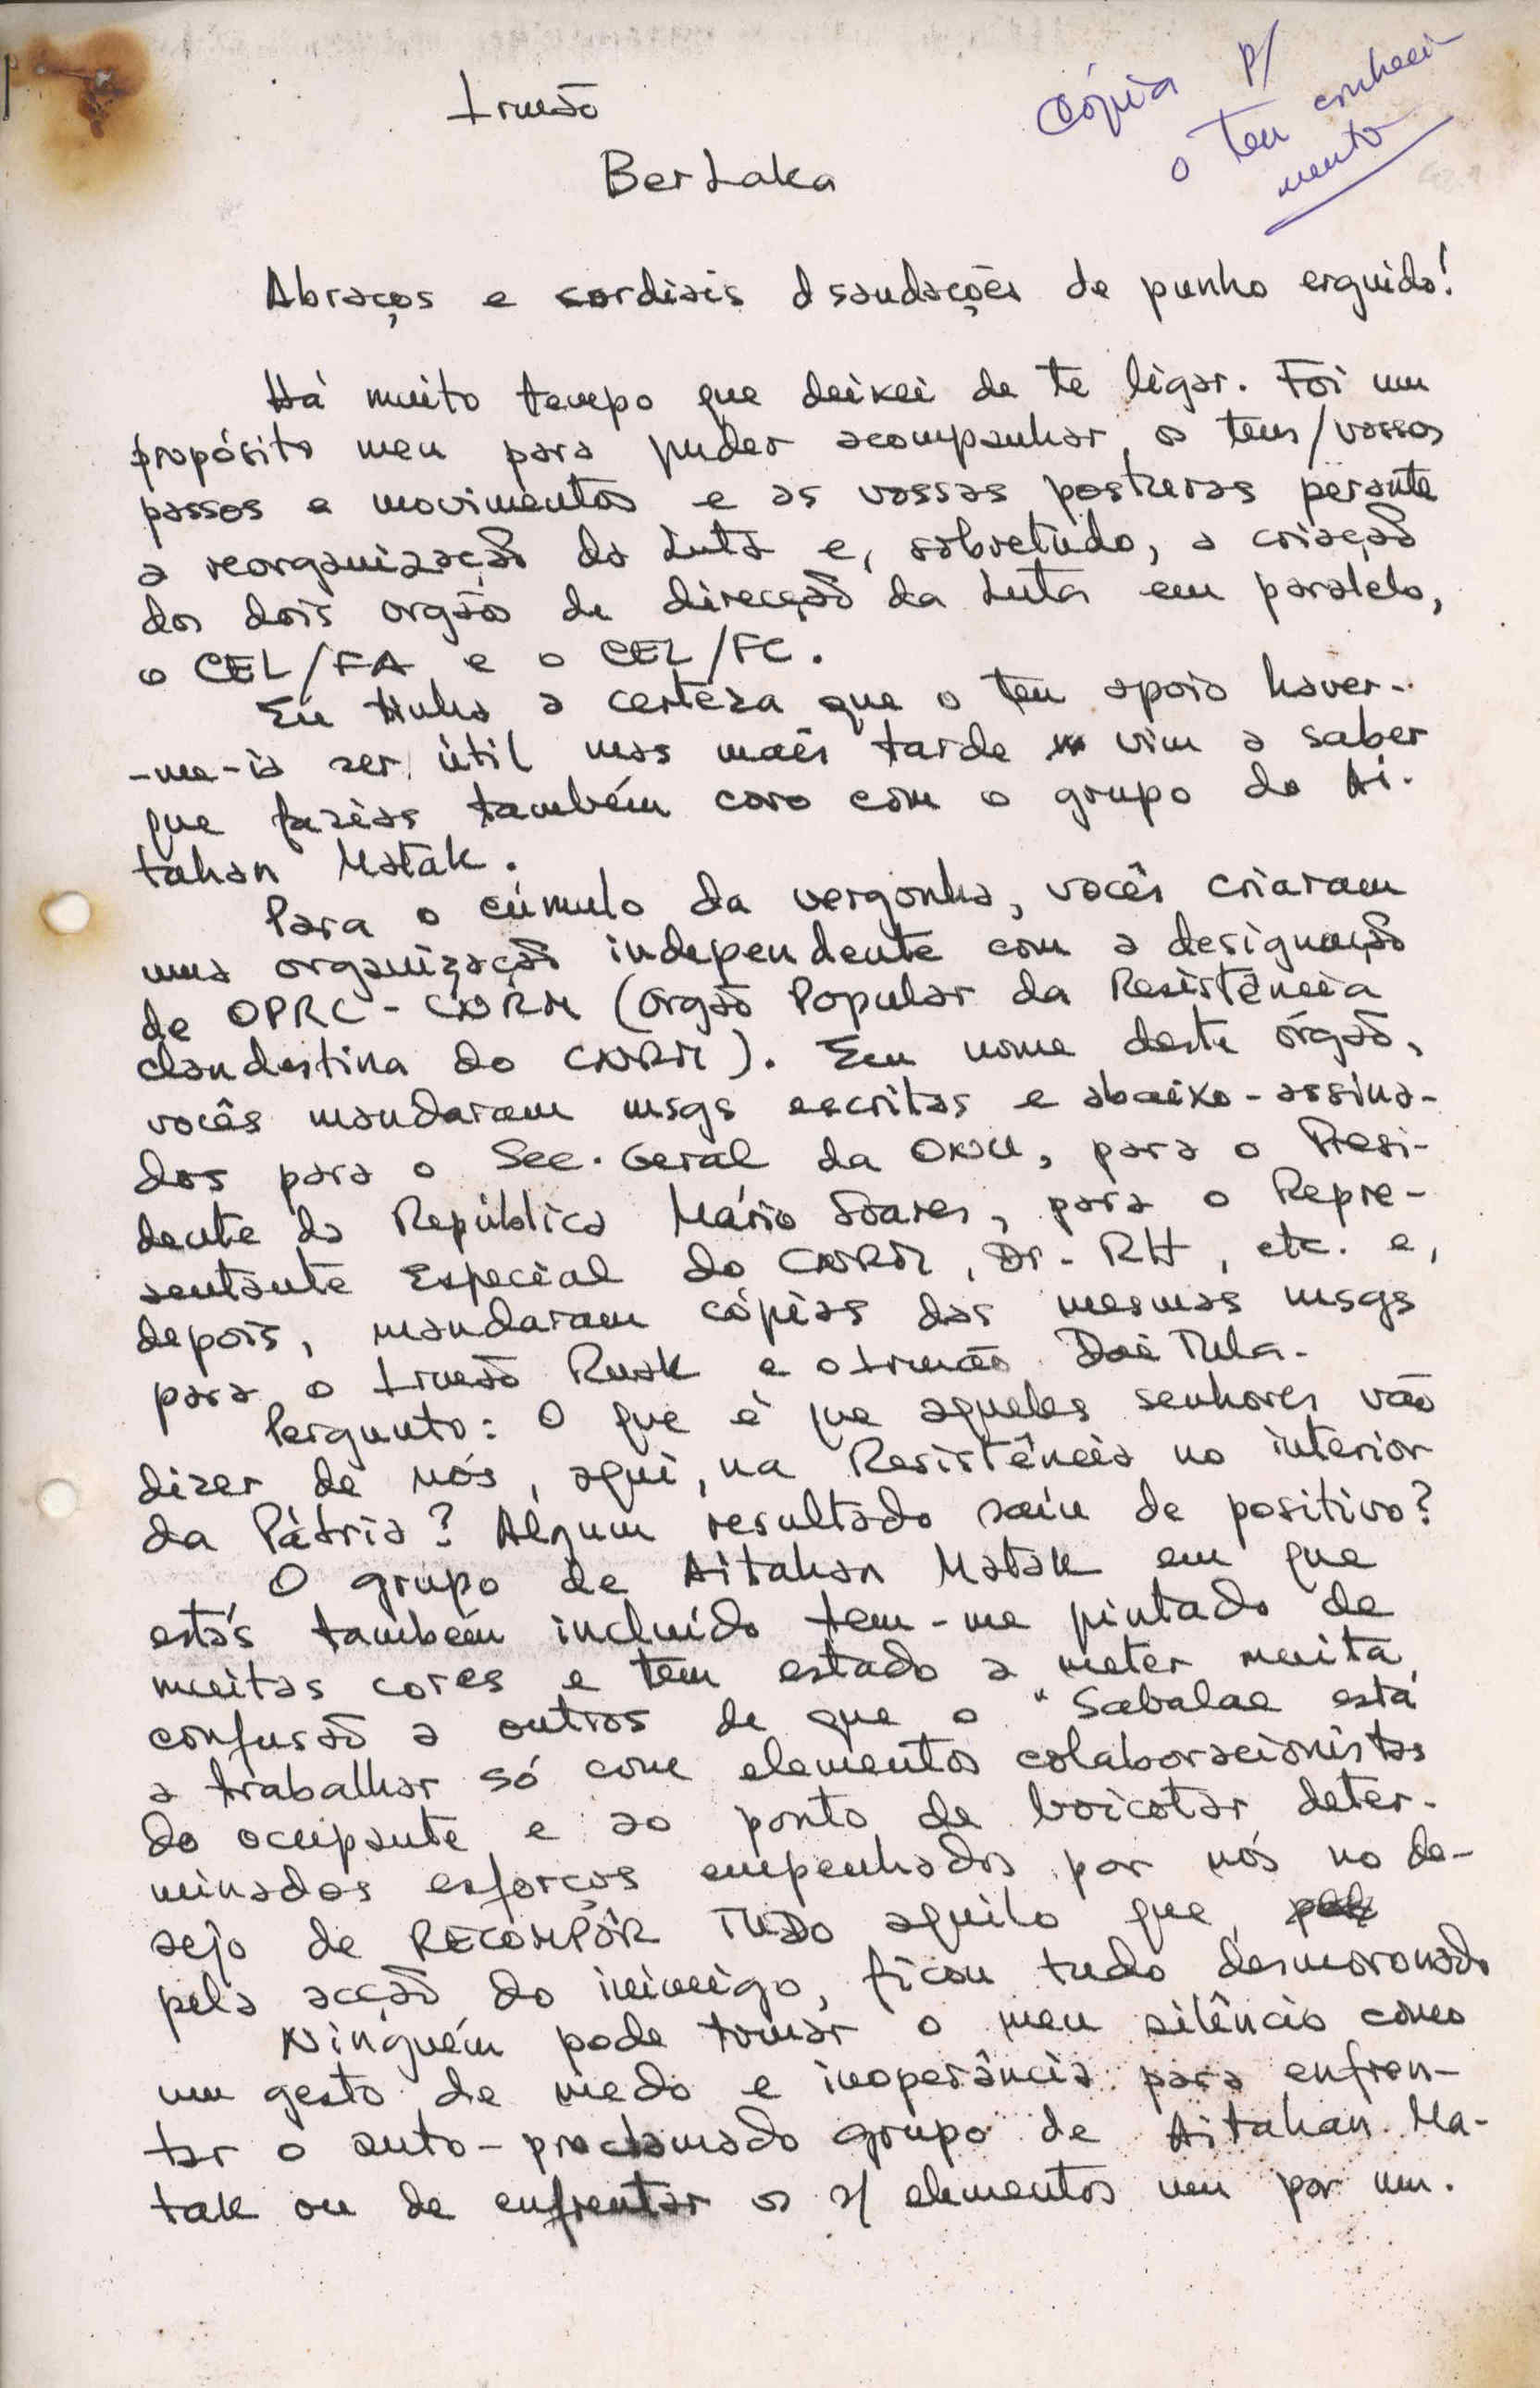 Irmão
BerLaka
Cópia p/
o teu conheci
mento
Abraços e cordiais saudações de punho erguido!
Há muito tempo que deixei de te ligar. Foi um
propósito meu para puder acompanhar os teus/vossos
passos e movimentos e as vossas posturas perante
a reorganização da Luta e, sobretudo, a criação
dos dois orgãos de direcção da Luta em paralelo,
o CEL/FA e o CEL/FC.
Eu tinha a certeza que o teu apoio haver-
-me-ia ser útil mas mais tarde vim a saber
que fazias também coro com o grupo do Ai-
tahan Matak.
Para o cúmulo da vergonha, vocês criaram
uma organização independente com a designação
de OPRC-CNRM (Orgão Popular da Resistência
clandestina do CNRM). Em nome deste órgão,
vocês mandaram msgs escritas e abaixo-assina-
dos para o Sec. Geral da ONU, para o Presi-
dente da República Mário Soares, para o Repre-
sentante Especial do CNRM, Dr. RH, etc. e,
depois, mandaram cópias das mesmas msgs
para o Irmão Ruak e o Irmão Doi Tula.
Pergunto: O que é que aqueles senhores vão
dizer de nós, aqui, na Resistência no interior
da Pátria? Algum resultado saíu de positivo?
O grupo de Aitahan Matak em que
estás também incluído tem-me pintado de
muitas cores e tem estado a meter muita
confusão a outros de que o "Sabalae está
a trabalhar só com elementos colaboracionistas
do ocupante e ao ponto de boicotar deter-
minados esforços empenhados por nós no de-
sejo de RECOMPÔR TUDO aquilo que,
pela acção do inimigo, ficou tudo desmoronado
Ninguém pode tomar o meu silêncio como
um gesto de medo e inoperância para enfren-
tar o auto-proclamado grupo de Aitahan Ma-
tak ou de enfrentar os s/ elementos um por um.